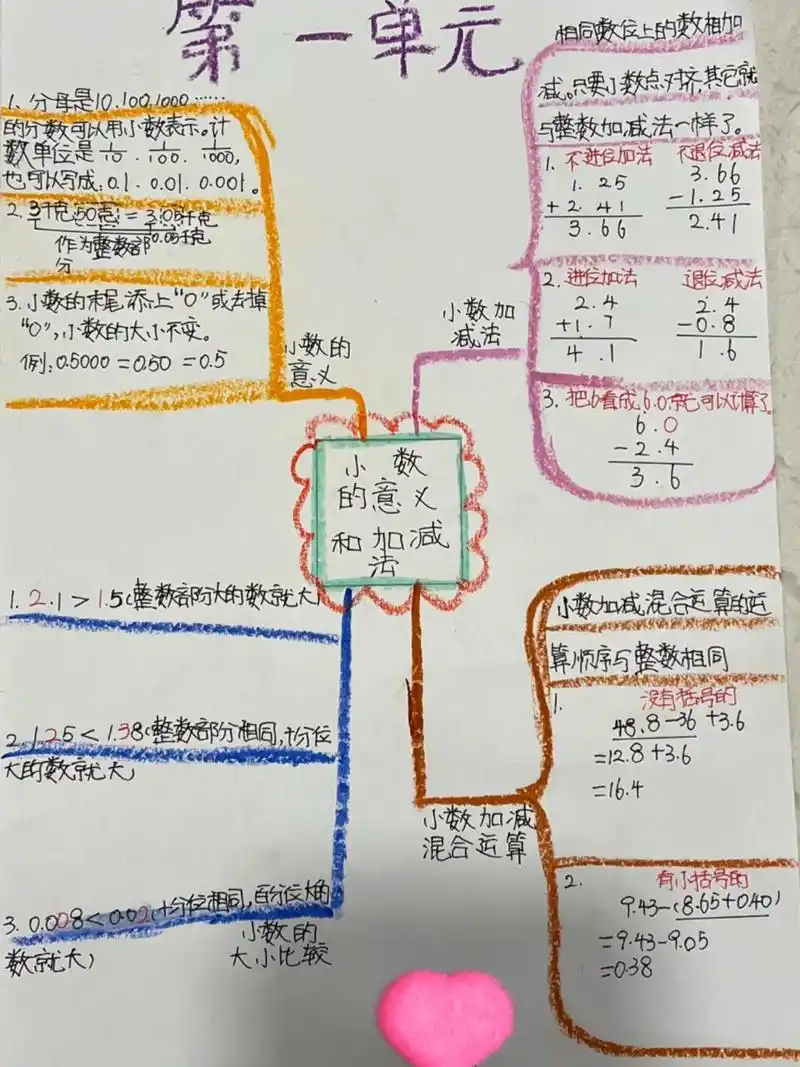 第一单元
1. 分母是10.100.1000……
的分数可以用小数表示。计
数单位是 1/10 . 1/100 . 1/1000,
也可以写成:0.1 . 0.01 . 0.001。
2. 3千克50克 = 3.05千克
作为整数部 0.05千克
分
3. 小数的末尾添上“0”或去掉
“0”,小数的大小不变。
例:0.5000 = 0.50 = 0.5
小数的
意义
相同数位上的数相加
减。只要小数点对齐,其它就
与整数加减法一样了。
1. 不进位加法 不退位减法
1. 25 3. 66
+ 2. 41 - 1. 25
3. 66 2. 41
2. 进位加法 退位减法
2. 4 2. 4
+ 1. 7 - 0. 8
4 . 1 1 . 6
3. 把6看成6.0就可以计算了。
6 . 0
- 2 . 4
3 . 6
小数加
减法
小数
的意义
和加减
法
1. 2.1 > 1.5(整数部分大的数就大)
2. 1.25 < 1.38(整数部分相同,十分位
大的数就大)
3. 0.008 < 0.02(十分位相同,百分位大的
数就大)
小数的
大小比较
小数加减混合运算的运
算顺序与整数相同
1. 没有括号的
48.8-36 +3.6
=12.8+3.6
=16.4
2. 有小括号的
9.43-(8.65+0.40)
=9.43-9.05
=0.38
小数加减
混合运算